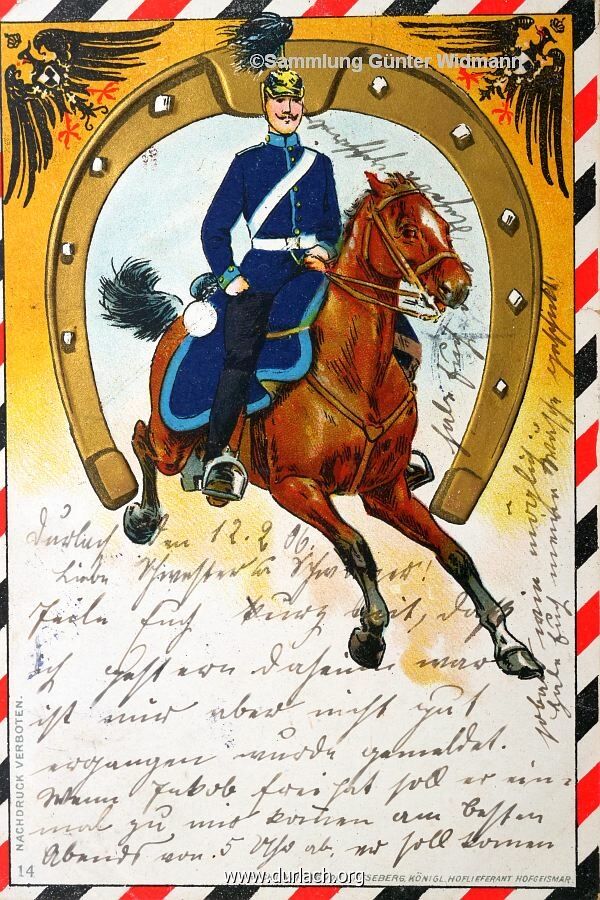 ©Sammlung Günter Widmann
Durlach den 12.2.06.
Liebe Schwester & Schwager!
Teile Euch kurz mit, daß
ich gestern daheim war
ist mir aber nicht gut
ergangen wurde gemeldet.
Wenn Jakob frei hat soll er ein-
mal zu mir kommen am besten
Abends von 5 Uhr ab. er soll kommen
sobald wie möglich
habe Euch
NACHDRUCK VERBOTEN.
14
www.durlach.org
SEBERG, KÖNIGL. HOFLIEFERANT HOFGEISMAR.